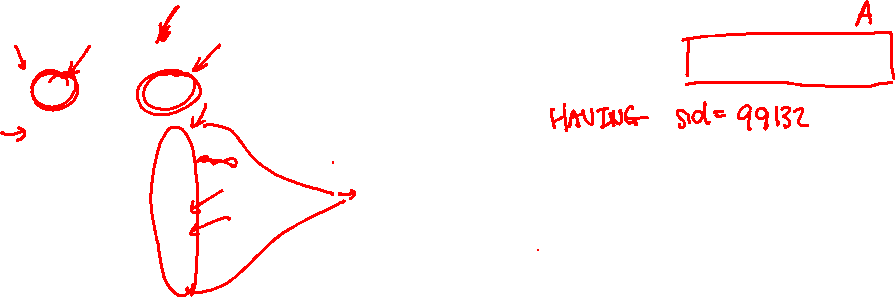 A
HAVING sid= 99132